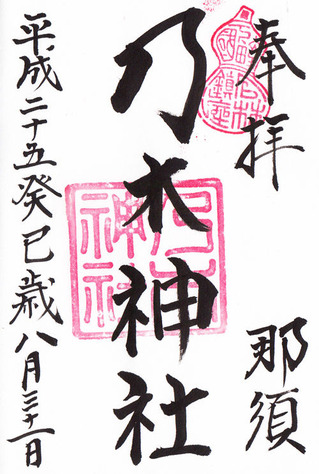 奉拝
那須
乃木神社
平成二十五癸巳歳八月三十一日
乃木神社